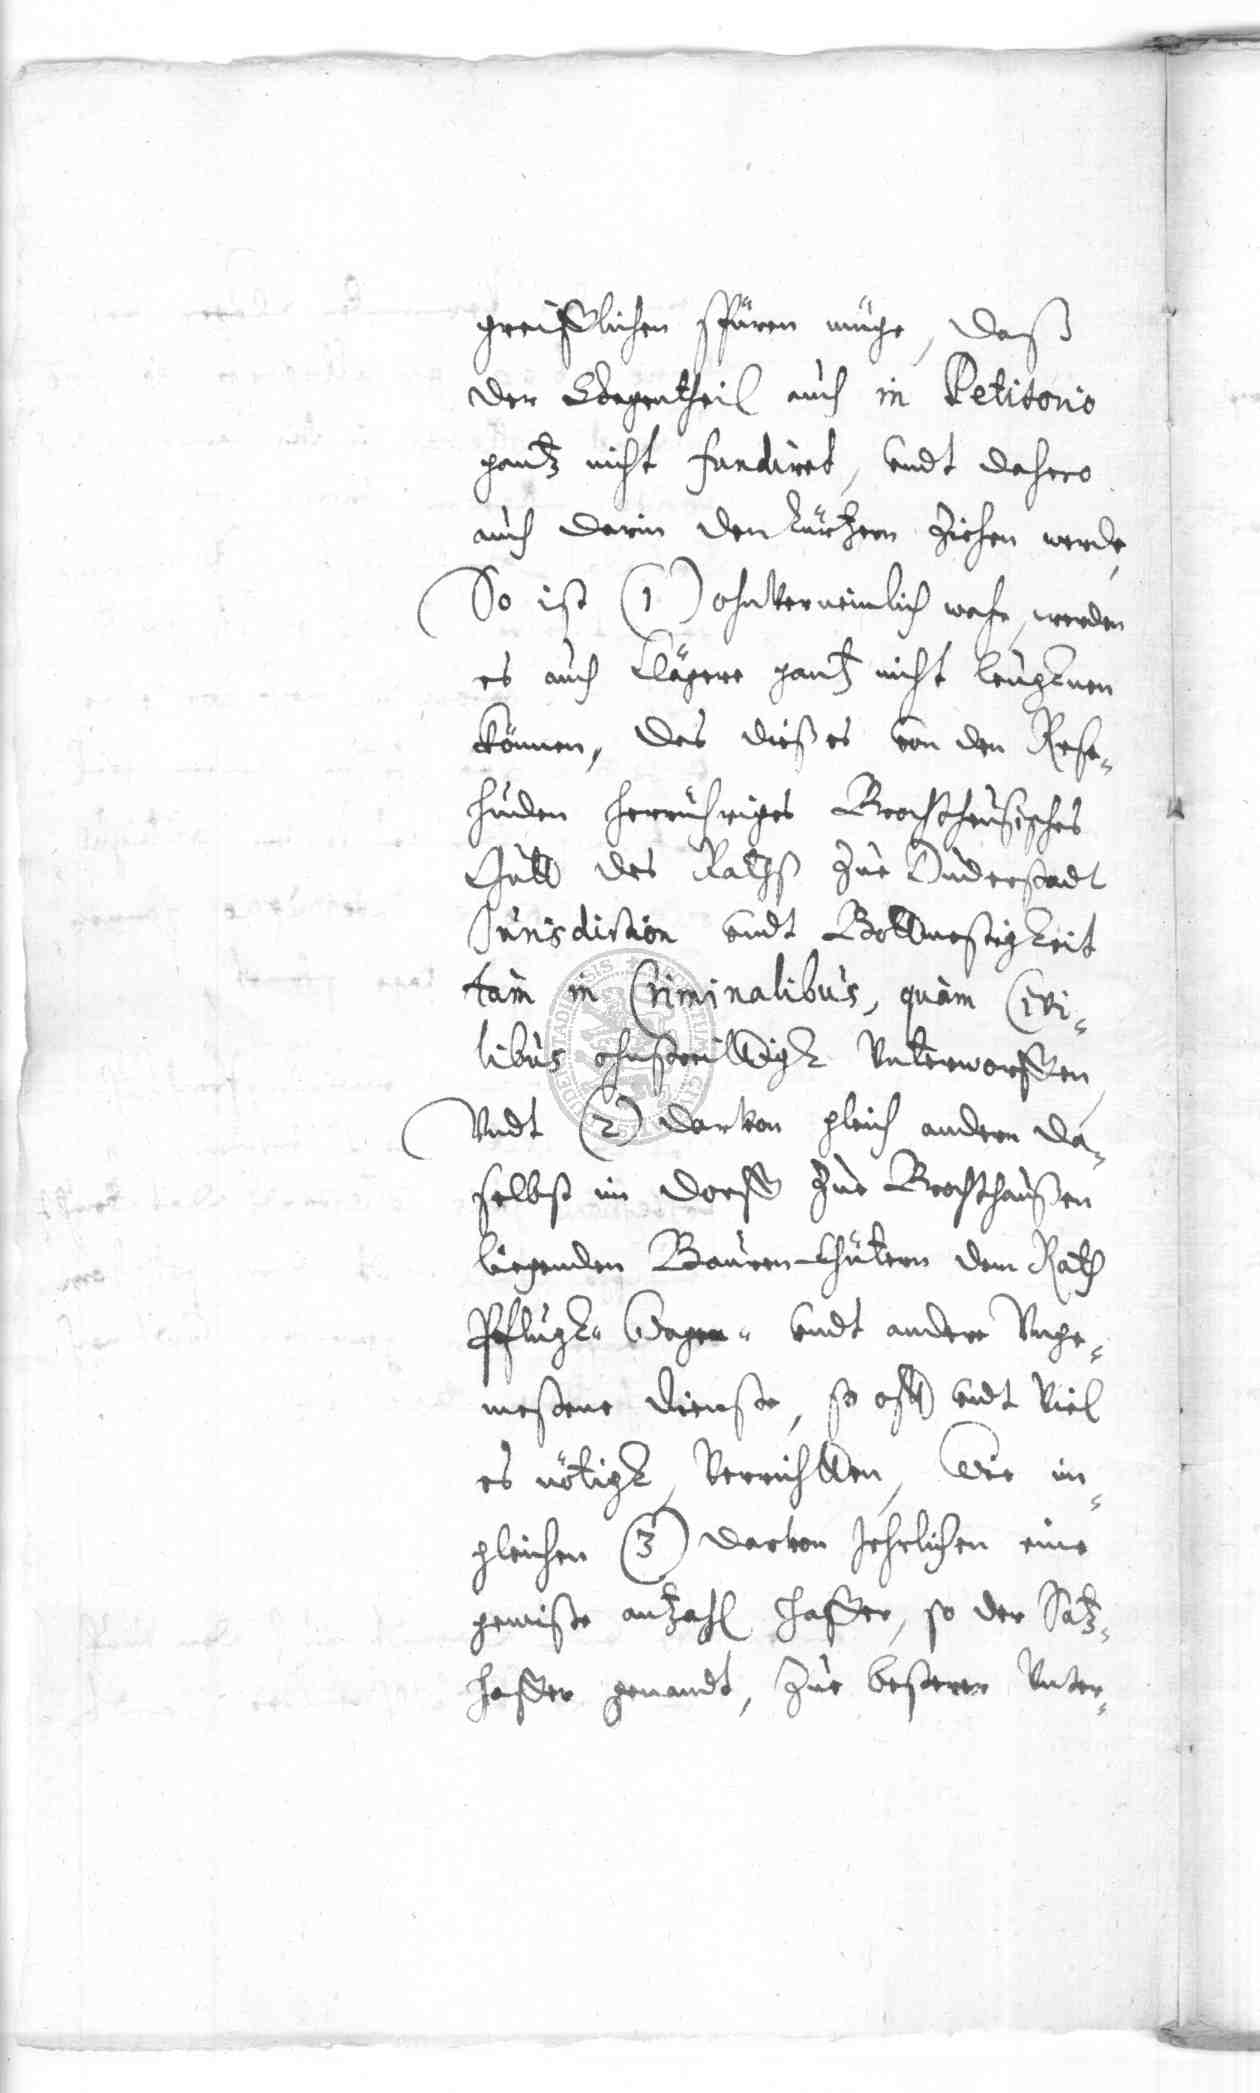 greifflichen spüren müge, daß
der Gegentheil auch in Petitorio
gantz nicht fundiret, undt dahero
auch darin den kürtzern ziehen werde,
So ist (1) ohnverneinlich wahr, werden
es auch Klägere gantz nicht leugknen
können, das dießes von den
huden herrühriges Brochtheusisches
Guth des Raths zue Duderstadt
Jurisdiction undt Bottmeßigkeit
tam in Criminalibus, quam Civi-
libus ohnstreittigk unterworffen,
Undt (2) darvon gleich andern da-
selbst im dorff zue Brochthaußen
liegenden Bauren-Gütern dem Rath
Pflugk- Wagen- undt andere Unge-
meßene dienste, so offt undt viel
es nötigk, verrichtten, Wie im-
gleichen (3) darvon Jehrlichen eine
gewiße antzahl haffer, so der Satz-
haffer genandt, zue beßerer Unter-